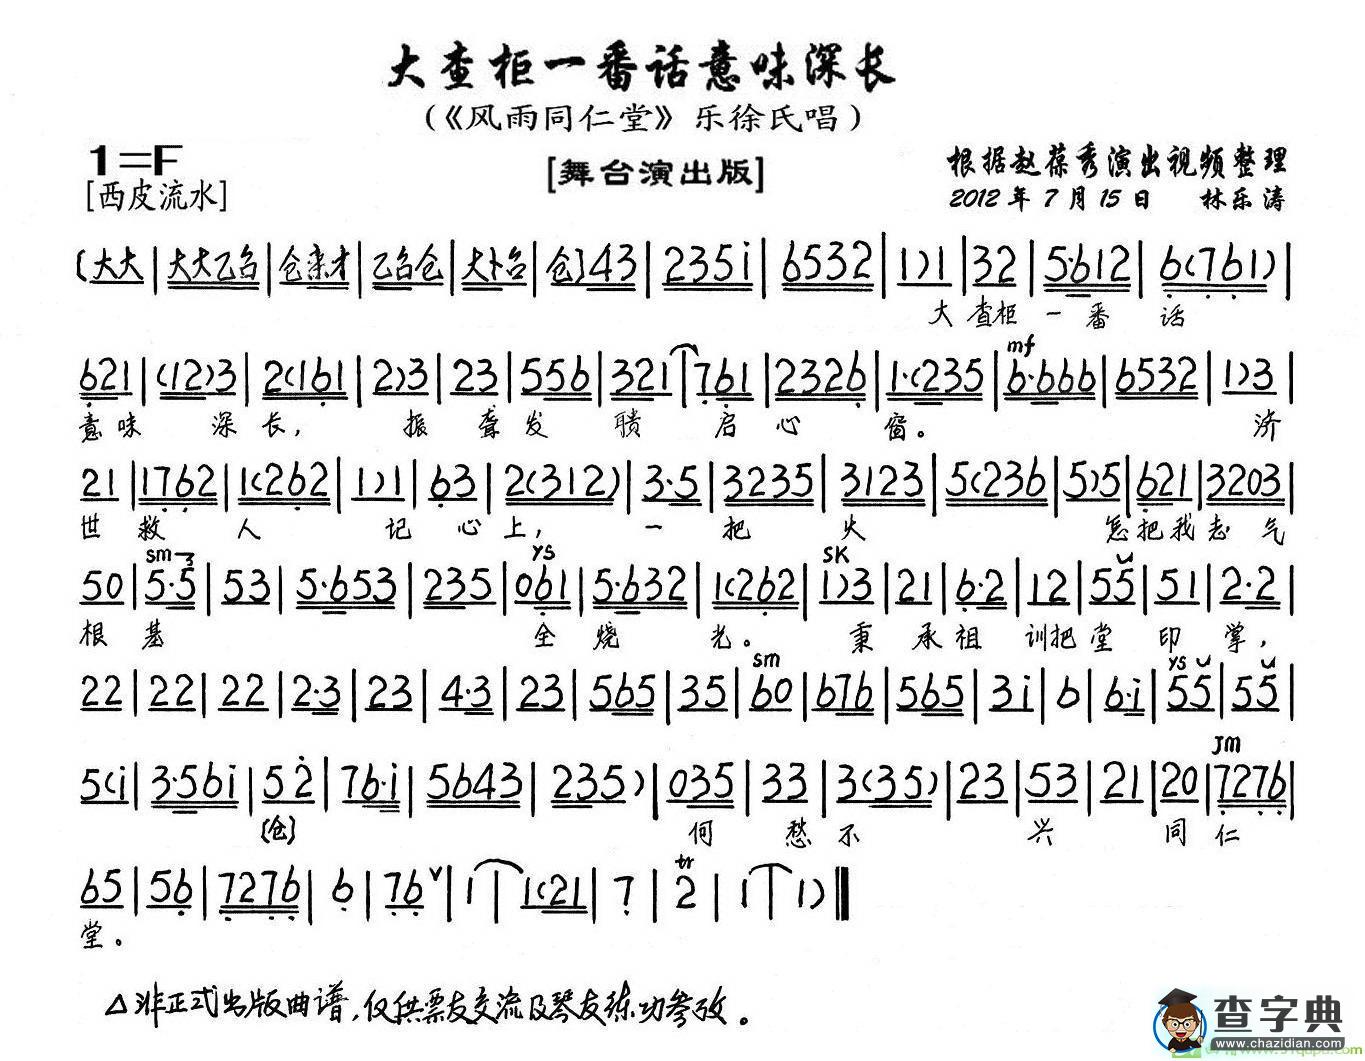 大查柜一番话意味深长
(《风雨同仁堂》乐徐氏唱)
1=F
[舞台演出版]
根据赵葆秀演出视频整理
[西皮流水]
2012年7月15日 林乐涛
(大大 | 大大乙台 | 仓来才 | 乙台仓 | 大卜台 | 仓)43 | 235i | 6532 | 1)1 | 32 | 5·612 | 6(761) |
大 查柜 一 番 话
621 | (12)3 | 2(161 | 2)3 | 23 | 556 | 321 | 761 | 2326 | 1·(235 | mf 6·666 | 6532 | 1)3 |
意味 深 长, 振 聋 发 聩 启 心 窗。 济
21 | 1762 | 1(262 | 1)1 | 63 | 2(312) | 3·5 | 3235 | 3123 | 5(236 | 5)5 | 621 | 3203 |
世 救 人 记 心 上, 一 把 火 怎把我志气
sm 3 YS SK
50 | 5·5 | 53 | 5·653 | 235 | 061 | 5·632 | 1(262 | 1)3 | 21 | 6·2 | 12 | 55 | 51 | 2·2 |
根 基 全 烧 光。 秉 承祖 训把 堂 印 掌,
sm YS
22 | 22 | 22 | 2·3 | 23 | 4·3 | 23 | 565 | 35 | 60 | 676 | 565 | 3i | 6 | 6·i | 55 | 55 |
JM
5(i | 3·56i | 52 | 76·i | 5643 | 235) | 035 | 33 | 3(35) | 23 | 53 | 21 | 20 | 7276 |
(仓) 何 愁 不 兴 同 仁
tr
65 | 56 | 7276 | 6 | 76 | 1 | 1(21 | 7 | 2 | 1 | 1) ‖
堂。
△非正式出版曲谱,仅供票友交流及琴友练功参考。
查字典
www.chazidian.com